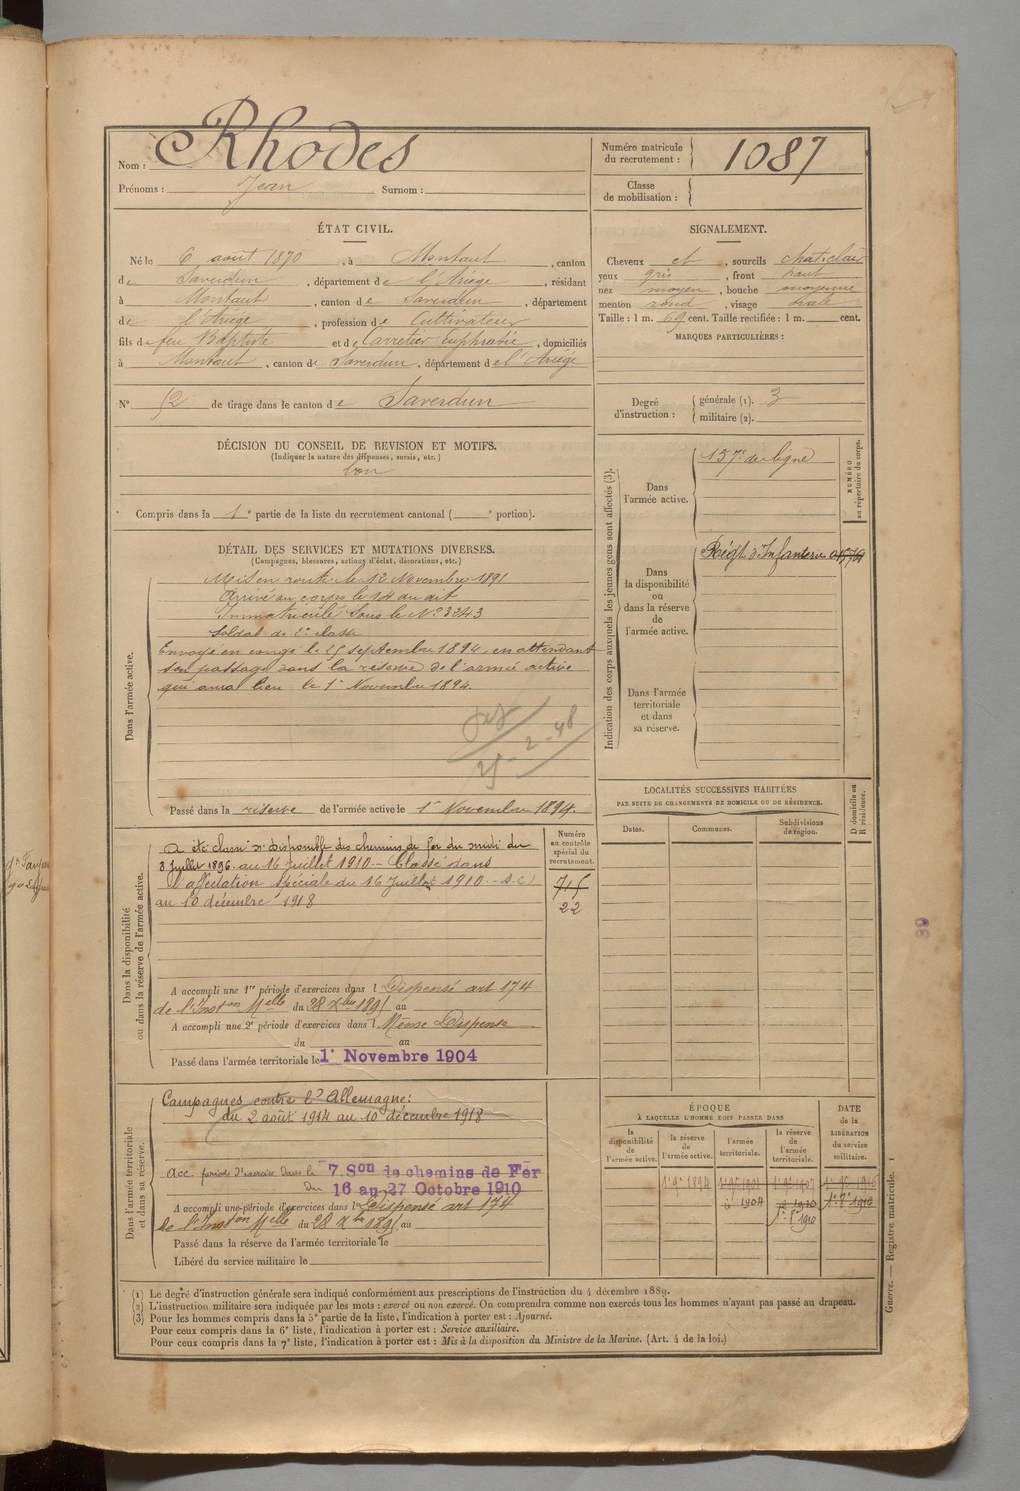 Nom : Rhodes
Prénoms : Jean Surnom :
Numéro matricule du recrutement : 1087
Classe de mobilisation :
ÉTAT CIVIL.
Né le 6 août 1870, à Montaut, canton
de Saverdun, département de l'Ariège, résidant
à Montaut, canton de Saverdun, département
de l'Ariège, profession de Cultivateur
fils de feu Baptiste et de Carretier Euphrasie, domiciliés
à Montaut, canton de Saverdun, département de l'Ariège
N° 52 de tirage dans le canton de Saverdun
SIGNALEMENT.
Cheveux et, sourcils chat. clair
yeux gris, front haut
nez moyen, bouche moyenne
menton rond, visage ovale
Taille : 1 m. 69 cent. Taille rectifiée : 1 m. cent.
MARQUES PARTICULIÈRES :
Degré d'instruction : générale (1). 3
militaire (2).
DÉCISION DU CONSEIL DE REVISION ET MOTIFS.
(Indiquer la nature des dispenses, sursis, etc.)
bon
Compris dans la 1e partie de la liste du recrutement cantonal ( e portion).
DÉTAIL DES SERVICES ET MUTATIONS DIVERSES.
(Campagnes, blessures, actions d'éclat, décorations, etc.)
Dans l'armée active.
Mis en route le 12 Novembre 1891
Arrivé au corps le 14 au dit
Immatriculé sous le N° 3243
Soldat de 2e classe
Envoyé en congé le 25 septembre 1894, en attendant
son passage dans la réserve de l'armée active
qui aura lieu le 1er Novembre 1894.
25-2-48
Passé dans la réserve de l'armée active le 1er Novembre 1894.
Indication des corps auxquels les jeunes gens sont affectés (3).
NUMÉRO au répertoire du corps.
Dans l'armée active.
157e de ligne
Dans la disponibilité ou dans la réserve de l'armée active.
Régt d'Infanterie
Dans l'armée territoriale et dans sa réserve.
Dans la disponibilité ou dans la réserve de l'armée active.
Numéro au contrôle spécial du recrutement.
715
22
A été classé disponible des chemins de fer du midi du
8 Juillet 1896 au 16 Juillet 1910 - Classé dans
l'affectation spéciale du 16 Juillet 1910 - S.C)
au 10 décembre 1918
A accompli une 1re période d'exercices dans l Dispensé art 174
de l'Inston Melle du 28 Xbre 1895 au
A accompli une 2e période d'exercices dans l Même Dispense
du au
Passé dans l'armée territoriale le 1er Novembre 1904
LOCALITÉS SUCCESSIVES HABITÉES
PAR SUITE DE CHANGEMENTS DE DOMICILE OU DE RÉSIDENCE.
Dates. Communes. Subdivisions de région. D domicile ou R résidence.
Dans l'armée territoriale et dans sa réserve.
Campagnes contre l'Allemagne :
du 2 août 1914 au 10 décembre 1918
Acc. période d'exercice dans la 7. Son de chemins de Fer
du 16 au 27 Octobre 1910
A accompli une période d'exercices dans l Dispensé art 174
de l'Inston Melle du 28 Xbre 1895 au
Passé dans la réserve de l'armée territoriale le
Libéré du service militaire le
ÉPOQUE
À LAQUELLE L'HOMME DOIT PASSER DANS
DATE de la LIBÉRATION du service militaire.
la disponibilité de l'armée active. la réserve de l'armée active. l'armée territoriale. la réserve de l'armée territoriale.
1er 9bre 1894
1904
1910
1er 8bre 1910
(1) Le degré d'instruction générale sera indiqué conformément aux prescriptions de l'instruction du 4 décembre 1889.
(2) L'instruction militaire sera indiquée par les mots : exercé ou non exercé. On comprendra comme non exercés tous les hommes n'ayant pas passé au drapeau.
(3) Pour les hommes compris dans la 5e partie de la liste, l'indication à porter est : Ajourné.
Pour ceux compris dans la 6e liste, l'indication à porter est : Service auxiliaire.
Pour ceux compris dans la 7e liste, l'indication à porter est : Mis à la disposition du Ministre de la Marine. (Art. 4 de la loi.)
Guerre. — Registre matricule. 1